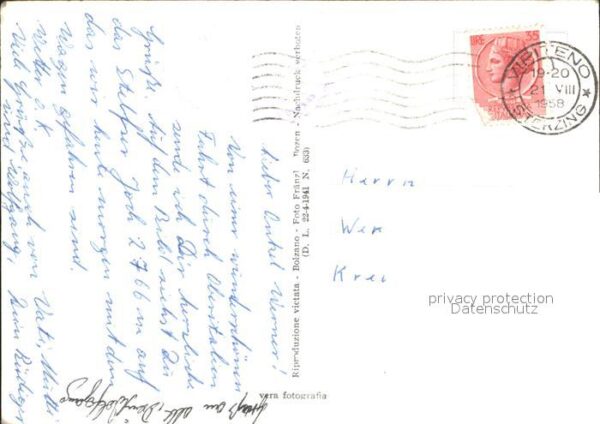 Lieber Onkel Werner!
Von einer wunderschönen
Fahrt durch Oberitalien
sende ich Dir herzliche
Grüße. Auf dem Bild siehst Du
das Stilfser Joch 2766 m auf
das wir heute morgen mit dem
Wagen gefahren sind.
Wetter o.K.
Viele Grüße auch von Vati, Mutti
und Wolfgang, Dein Rüdiger
Riproduzione vietata - Bolzano - Foto Fränzl Bozen - Nachdruck verboten
(D. L. 22-4-1941 N. 633)
vera fotografia
LIRE 35
VIPITENO
19-20
21 VIII
1958
STERZING
Herrn
Wer
Krei
privacy protection
Datenschutz